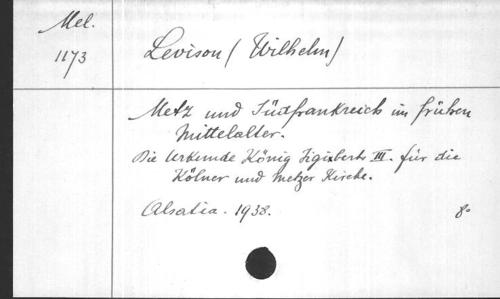 Mel.
1173
Levison (Wilhelm)
Metz und Südfrankreich im frühen
Mittelalter.
Die Urkunde König Sigiberts III. für die
Kölner und Metzer Kirche.
Alsatia. 1938. 8°